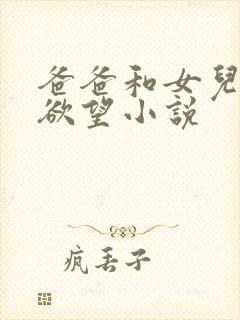 爸爸和女兒
欲望小說
疯丢子